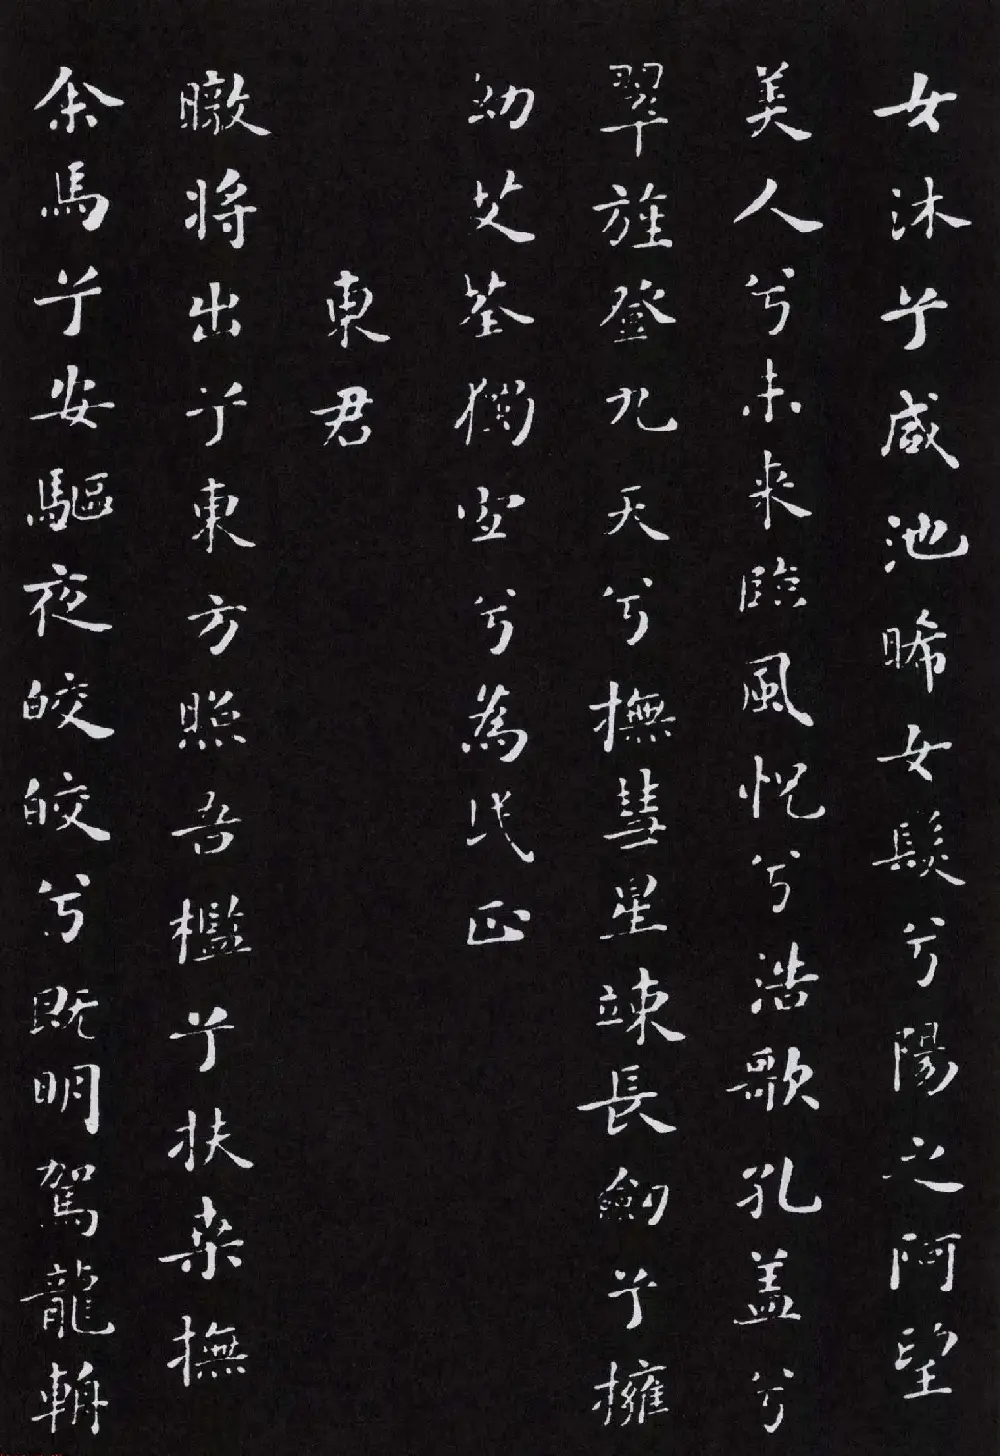 女沐兮咸池晞女髮兮陽之阿望
美人兮未来臨風怳兮浩歌孔盖兮
翠旌登九天兮撫彗星竦長劍兮擁
幼艾荃獨宜兮為民正
東君
暾将出兮東方照吾檻兮扶桒撫
余馬兮安驅夜皎皎兮既明駕龍輈